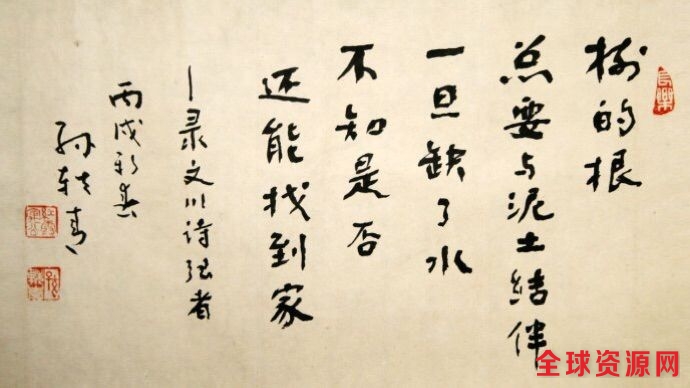 树的根
总要与泥土结伴
一旦缺了水
不知是否
还能找到家
—录文川诗强者
丙戌新春
孙轶青
全球资源网